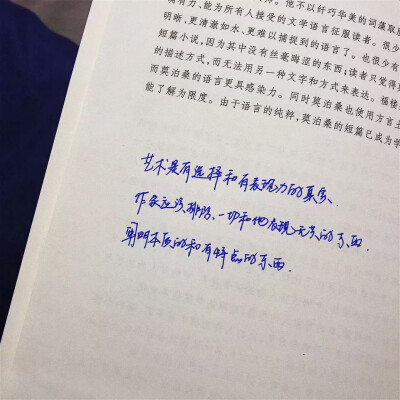 。他不以纤巧华美的词藻取胜
有力、能为所有人接受的文学语言征服读者。很少
明晰、更清澈如水、更难以捕捉到的语言了。也很少有
短篇小说，因为其中没有丝毫晦涩的东西；读者只觉得
的描述方式，而无法用另一种文字和方式来表达。福楼
而莫泊桑的语言更具感染力。同时莫泊桑也使用方言土
能了解为限度。由于语言的纯粹，莫泊桑的短篇已成为学
艺术是有选择和有表现力的真实、
作家应该排除、一切和他表现无关的东西
阐明本质的和有特点的东西.